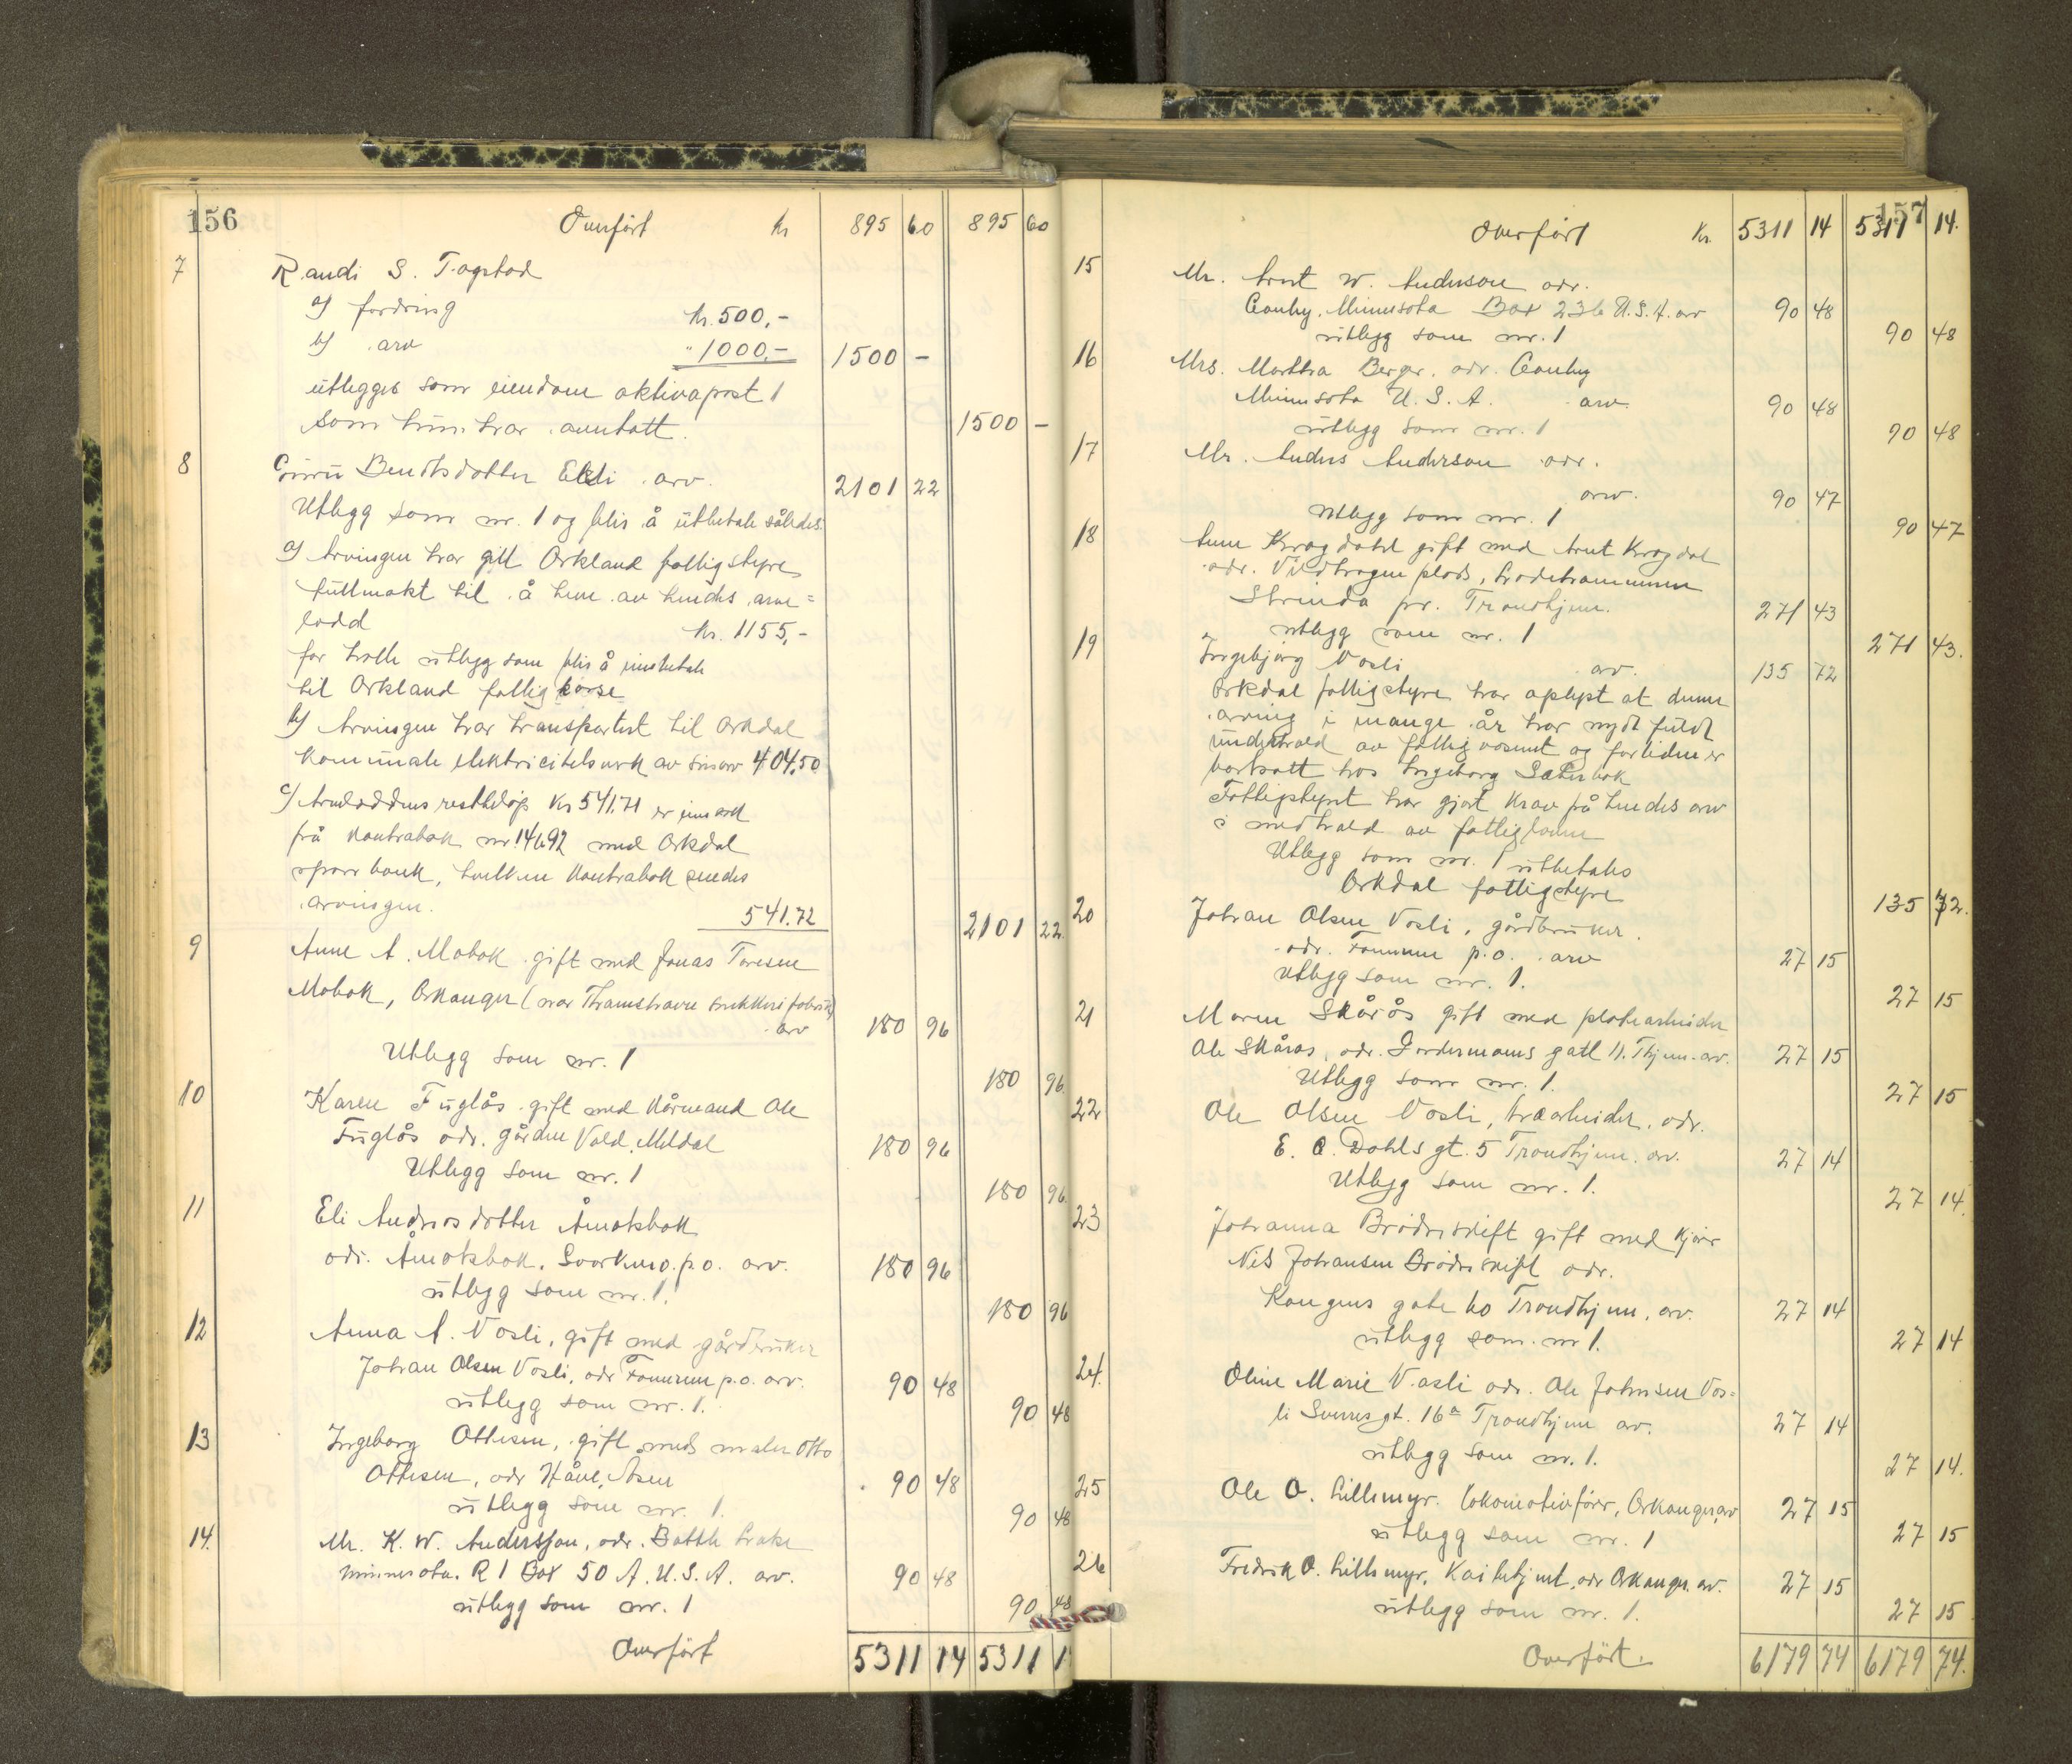 156
Overført Kr 895 60 895 60
7 Randi S. Togstad
a) fordring kr. 500,-
b) arv " 1000,- 1500 -
utlegges som eiendom aktivapost 1
som hun har anntatt. 1500 -
8 Guru Bendtsdatter Ekli arv. 2101 22
Utlegg som nr. 1 og blir å utbetale således:
a) Arvingen har gitt Orkland fattigstyre
fullmakt til å heve av hendes arve=
lodd kr. 1155,-
for hvilke utlegg som blir å innbetale
til Orkland fattigkasse
b) Arvingen har transportert til Orkdal
kommunale elektricitetsverk av sin arv 404,50
c) Arvloddens restbeløp kr 541.71 er innsatt
på kontrabok nr 14692 med Orkdal
sparebank, hvilken kontrabok sendes
arvingen. 541.72 2101 22
9 Anne A. Mobak gift med Jonas Toresen
Mobak, Orkanger (nær Thamshavn sukkerifabrik)
arv 180 96
Utlegg som nr. 1 180 96
10 Karen Fuglås gift med kårmand Ole
Fuglås adr. gården Vold, Meldal 180 96
Utlegg som nr. 1 180 96
11 Eli Andersdatter Åmotsbak
adr. Åmotsbak, Svorkmo p.o. arv. 180 96
utlegg som nr. 1. 180 96
12 Anna A. Vasli, gift med gårdbruker
Johan Olsen Vasli, adr Fannrem p.o. arv. 90 48
utlegg som nr. 1. 90 48
13 Ingeborg Ottesen, gift med maler Otto
Ottesen, adr Håne, Åsen 90 48
utlegg som nr. 1. 90 48
14. Mr. K. W. Anderson, adr. Battle Lake
Minnesota. R 1 Box 50 A. U.S.A. arv. 90 48
utlegg som nr. 1 90 48
Overført 5311 14 5311 1
157
Overført Kr. 5311 14 5311 14.
15 Mr. Arnt W. Anderson adr.
Canby, Minnesota Box 236 U.S.A. arv 90 48
utlegg som nr. 1 90 48
16 Mrs. Marttha Berger, adr. Canby
Minnesota U.S.A. arv. 90 48
utlegg som nr. 1 90 48
17 Mr. Anders Anderson adr.
arv. 90 47
utlegg som nr. 1 90 47
18 Anne Kragdahl gift med Arnt Kragdal
adr. Vildhagen plads, Ladehammeren
Strinda pr. Trondhjem. 271 43
utlegg som nr. 1 271 43.
19 Ingebjørg Vasli arv. 135 72
Orkdal fattigstyre har oplyst at denne
arving i mange år har nydt fuldt
underhold av fattigvæsenet og for tiden er
bortsatt hos Ingeborg Sæterbak
Fattigstyret har gjort krav på hendes arv
i medhold av fattigloven
Utlegg som nr. 1 utbetales
Orkdal fattigstyre 135 72.
20 Johan Olsen Vasli, gårdbruker.
adr. Fannrem p.o. arv 27 15
Utlegg som nr. 1. 27 15
21 Maren Skårås gift med platearbeider
Ole Skårås, adr. Gardermoens gatl 11. Thjem. arv. 27 15
Utlegg som nr. 1. 27 15
22 Ole Olsen Vasli, træarbeider, adr.
E. C. Dahls gt. 5 Trondhjem. arv. 27 14
Utlegg som nr. 1. 27 14.
23 Johanna Brødreskift gift med kjører
Nils Johansen Brødreskift adr.
Kongens gate 60 Trondhjem, arv. 27 14
utlegg som nr 1. 27 14
24. Oline Marie Vasli adr. Ole Johnsen Vas=
li Sverresgt. 16a Trondhjem arv. 27 14
utlegg som nr. 1. 27 14.
25 Ole O. Lillemyr. lokomotivfører, Orkanger, arv 27 15
utlegg som nr. 1 27 15
26 Fredrik O. Lillemyr, Kaibetjent, adr Orkanger. arv. 27 15
utlegg som nr. 1. 27 15
Overført. 6179 74 6179 74.